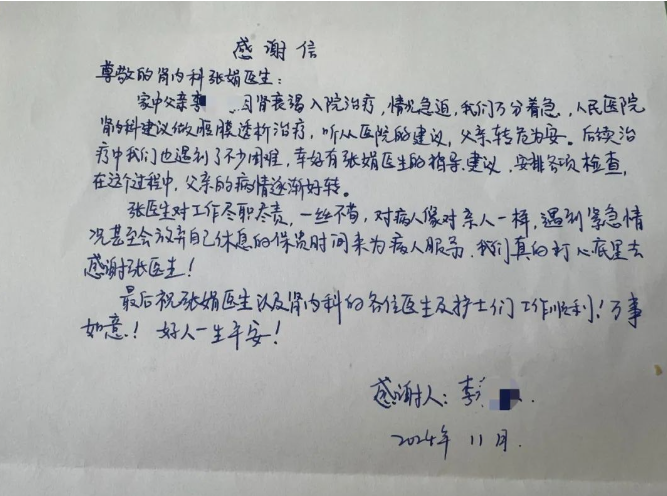 感谢信
尊敬的肾内科张娟医生：
家中父亲李 因肾衰竭入院治疗，情况急迫，我们万分着急，人民医院
肾内科建议做腹膜透析治疗，听从医院的建议，父亲转危为安。后续治
疗中我们也遇到了不少困难，幸好有张娟医生的指导、建议、安排各项检查，
在这个过程中，父亲的病情逐渐好转。
张医生对工作尽职尽责，一丝不苟，对病人像对亲人一样，遇到紧急情
况甚至会放弃自己休息的保贵时间来为病人服务，我们真的打心底里去
感谢张医生！
最后祝张娟医生以及肾内科的各位医生及护士们工作顺利！万事
如意！好人一生平安！
感谢人：李
2024年11月.